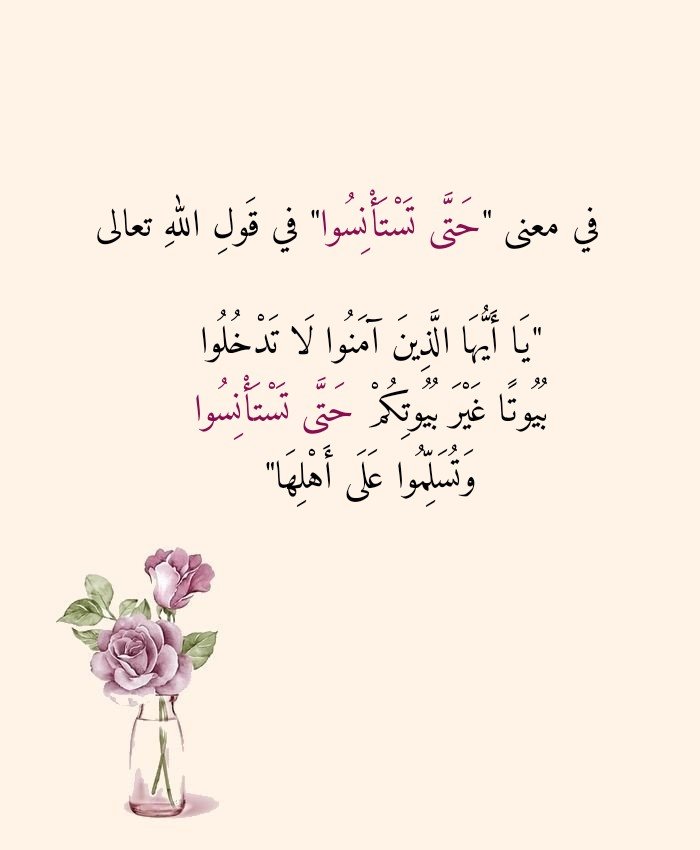 في معنى "حَتَّى تَسْتَأْنِسُوا" في قَولِ اللهِ تعالى
"يَا أَيُّهَا الَّذِينَ آمَنُوا لَا تَدْخُلُوا
بُيُوتًا غَيْرَ بُيُوتِكُمْ حَتَّى تَسْتَأْنِسُوا
وَتُسَلِّمُوا عَلَى أَهْلِهَا"